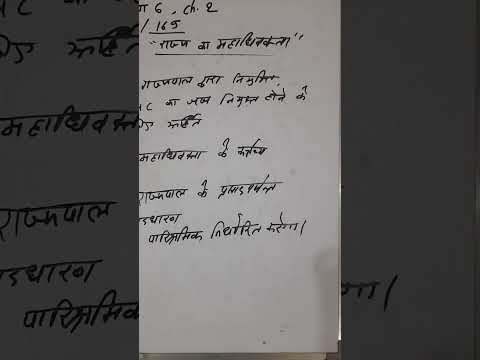 ग 6, ch. 2
/ 165
"राज्य का महाधिवक्ता"
राज्यपाल द्वारा नियुक्ति
HC का जज नियुक्त होने के
अर्हित
महाधिवक्ता के कर्तव्य
राज्यपाल के प्रसादपर्यन्त
पदधारण
पारिश्रमिक निर्धारित करेगा।